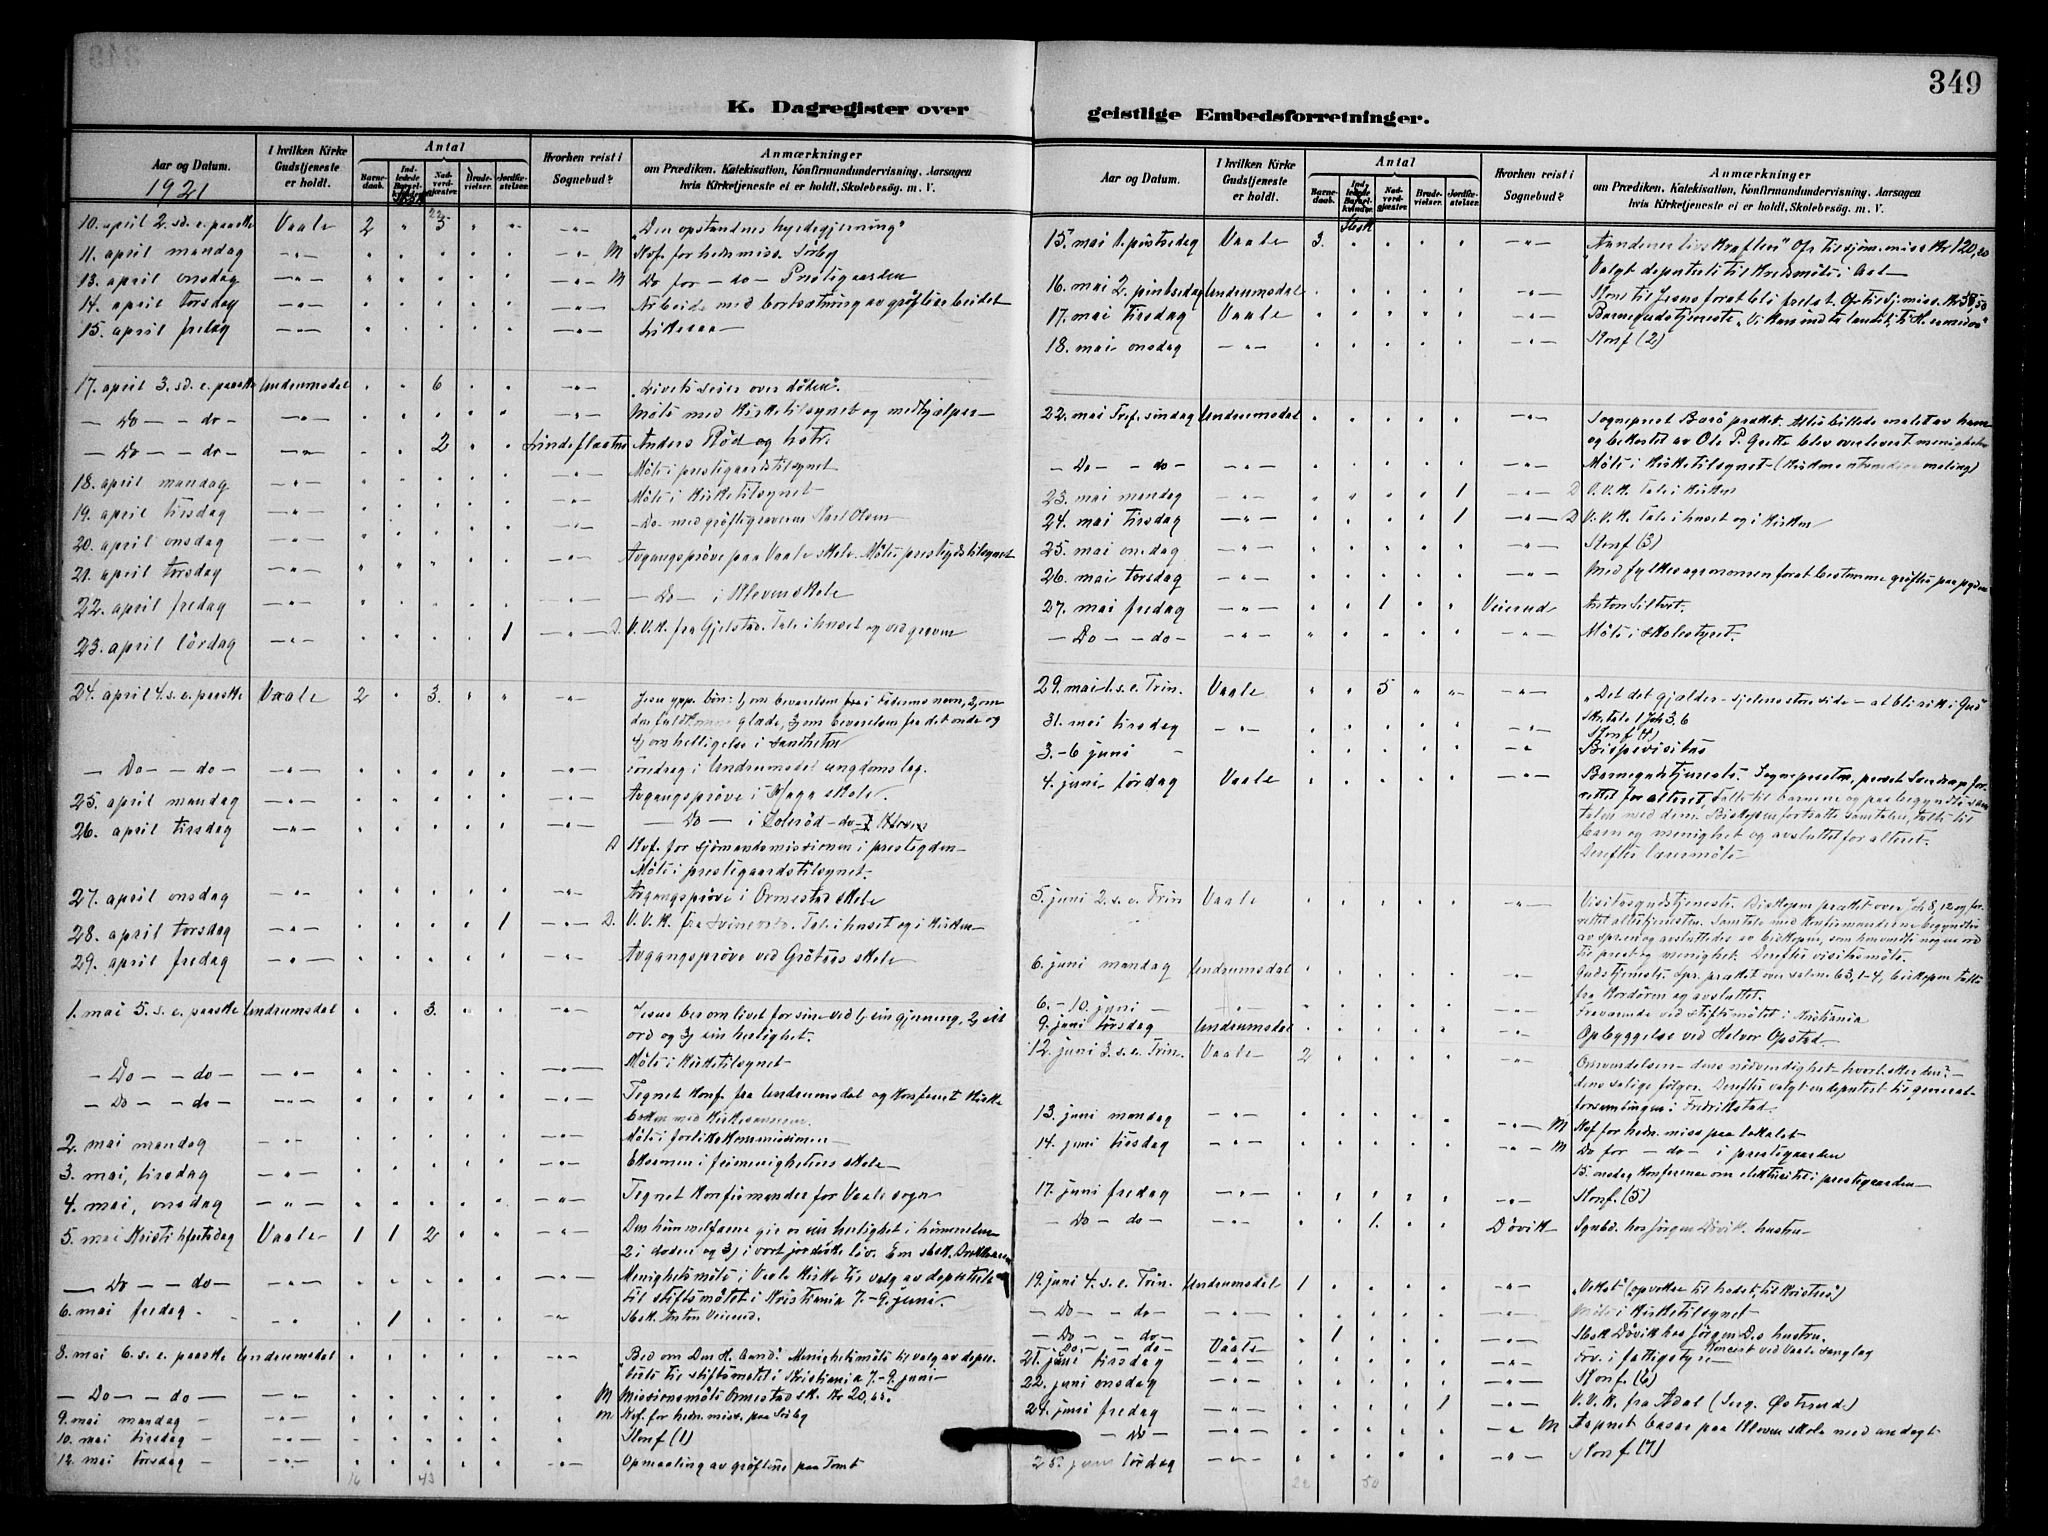 349
K. Dagregister over geistlige Embedsforretninger.
Aar og Datum. I hvilken Kirke Gudstjeneste er holdt. Antal Barnedaab. Indledede Barselkvinder. Nadverdgjæster. Brudevielser. Jordfæstelser. Hvorhen reist i Sognebud? Anmærkninger om Prædiken, Katekisation, Konfirmandundervisning, Aarsagen hvis Kirketjeneste ei er holdt, Skolebesøg. m. V.
1921
10. april 2. sd. e. paaske Vaale 2 " 3 " " -"- "Den opstandnes hyrdegjerning"
11. april mandag -"- M Kvf. for hedn.miss. Sörby
13. april onsdag -"- M Do for -do- Prestegaarden
14. april torsdag -"- Arbeide med bortsætning av gröftearbeidet
15. april fredag -"- Likesaa
17. april 3. sd. e. paaske Undrumsdal 6 -"- "Livets seier over döden".
- Do - - do - -"- Möte med kirketilsynet og medhjælper
- Do - - do - -"- 2 Anders Röd og hstr.
18. april mandag -"- Möte i prestegaardstilsynet
19. april tirsdag -"- Möte i kirketilsynet
20. april onsdag -"- -Do- med gröftegraveren Karl Olsen
21. april torsdag -"- Avgangspröve paa Vaale skole. Möte prestegdstilsynet
22. april fredag -"- -Do- i Kleven skole
23. april lördag -"- 1 -"- D. V.V.K. fra Gjelstad. Tale i huset og ved graven
24. april 4. s. e. paaske Vaale 2 " 3. " " -"- Jesu ypp. bön: 1) om bevarelse fra i Faderens navn, 2) om
den fuldkomne glæde, 3) om bevarelse fra det onde og
4) om helligelse i sandheten
- Do - - do - -"- Foredrag i Undrumsdal ungdomslag.
25. april mandag -"- Avgangspröve i Haga skole.
26. april tirsdag -"- -Do- i Soleröd -do- Kleven
D Kvf. for sjömandsmissionen i prestegden
Möte i prestegaardstilsynet.
27. april onsdag -"- Avgangspröve i Ormestad skole
28. april torsdag -"- 1 -"- D. V.V.K. fra Svinevold. Tale i huset og i kirken
29. april fredag -"- Avgangspröve ved Gröteös skole
1. mai 5. s. e. paaske Undrumsdal 3. -"- Jesus ber om livet for sine ved 1) sin gjerning, 2) sit
ord og 3) sin herlighet.
- Do - - do - -"- Möte i kirketilsynet
- Do - - do - -"- Tegnet konf. fra Undrumsdal og konferert kirke
boken med kirkesangeren.
2. mai mandag -"- Möte i forlikskommissionen
3. mai, tirsdag -"- Eksamen i frimenighetens skole
4. mai, onsdag -"- Tegnet konfirmander for Vaale sogn
5. mai Kristi hfartsdag Vaale 1 1 2 -"- Den himmelfarne gir os sin herlighet i himmelen
2 i döden og 3) i vort jordiske liv.
- Do - - do - Menighetsmöte i Vaale kirke til valg av deputerte
til stiftsmötet i Kristiania 7.-9. juni.
6. mai fredag 1 Sbsk. Anton Veierud.
8. mai 6. s. e. paaske Undrumsdal -"- "Bed om Den H. Aand". Menighetsmöte til valg av deper-
terte til stiftsmötet i Kristiania 7.-9. juni
- Do - - do - M Missionsmöte Ormestad sk. Kr 20,65.
9. mai mandag M Kvf. for hedn. miss. paa Sörby
10. mai tirsdag Konf (1)
12. mai torsdag Opmaaling av gröftene paa Tomt
16 43
15. mai 1. pintsedag Vaale 3. -"- "Aandens livskrafter" Of. til sjöm.miss Kr 120,20
Valgt deputerte til kredsmöte i Aal
16. mai 2. pintsedag Undrumsdal -"- Kom til Jesus forat bli frelst. Of. til sj. miss. Kr 58,50
17. mai tirsdag Vaale -"- Barnegudstjeneste
18. mai onsdag -"- Konf (2)
22. mai Tref. söndag Undrumsdal -"- Sogneprest Barö præket. Alterbillede malet av ham
og bekostet av Ole P. Grette blev overlevert menigheten
- Do - - do - -"- Möte i kirketilsynet
23. mai mandag -"- 1 -"- D V.V.K. Tale i kirken
24. mai tirsdag -"- 1 -"- D V.V.K. Tale i huset og i kirken
25. mai onsdag -"- Konf (3)
26. mai torsdag -"- Med fylkesagronomen forat bestemme gröfter paa pgden
27. mai fredag -"- 1 Veierud Anton Siltvet.
- Do - - do - -"- Möte i skolestyret.
29. mai 1. s. e. Trin. Vaale 5 -"- "Det det gjælder - sjelens store side - at bli rik i Gud"
Skr.tale 1 Joh 3.6
31. mai tirsdag -"- Konf (4)
3.-6 juni Bispevisitas
4. juni lördag Vaale -"- Barnegudstjeneste. Sognepresten, for-
rettet for alteret, talte til barnene og paabegyndte sam
talen med dem. Biskopen fortsatte samtalen, talte til
barn og menighet og avsluttet for alteret.
Derefter læremöte
5. juni 2. s. e. Trin Vaale -"- Visitasgudstjeneste. Biskopen præket over Joh 8,12 og for-
rettet altertjenesten. Samtale med konfirmanderne begyndtes
av spr. og avsluttedes av biskopen, som henvendte nogen ord
til prest og menighet. Derefter visitasmöte.
6. juni mandag Undrumsdal Gudstjeneste. Spr. præket over salme 63, 1-4, biskopen talte
fra kordören og avsluttet.
6.-10. juni Fraværende ved stiftsmötet i Kristiania
9. juni torsdag Undrumsdal Opbyggelse ved Halvor Opstad.
12. juni 3. s. e. Trin. Vaale 2 "Omvendelsen - dens nödvendighet - hvori sker den? -
dens salige fölger. Derefter valgt en deputert til general-
forsamlingen i Fredrikstad.
13. juni mandag -"- M Kvf for hedn. miss paa lokalet
14. juni tirsdag -"- M Do for -do- i prestegaarden
15. onsdag konferense om elektricitet i prestegaarden
17. juni fredag -"- Konf. (5)
- Do - do - -"- 1. Dövik Sgnbd. hos Jörgen Dövik hustru
19. juni 4. s. e. Trin. Undrumsdal 1 -"- "Vækst" (opvækse til hodet, til Kristus!)
- Do - - do - -"- Möte i kirketilsynet
- Do - - do - 1 Sbsk Dövik hos Jörgen D.s hustru.
- Do - - do - Vaale Koncert ved Vaale sanglag
21. juni tirsdag -"- Frv. i fattigstyre
22. juni onsdag -"- Konf. (6)
24. juni fredag -"- 1 V.V.K. fra Adal (Ing. Östrud)
- Do - -"- M Aapnet basar paa Kleven skole med andagt
25. juni lördag Konf (7)
22 50